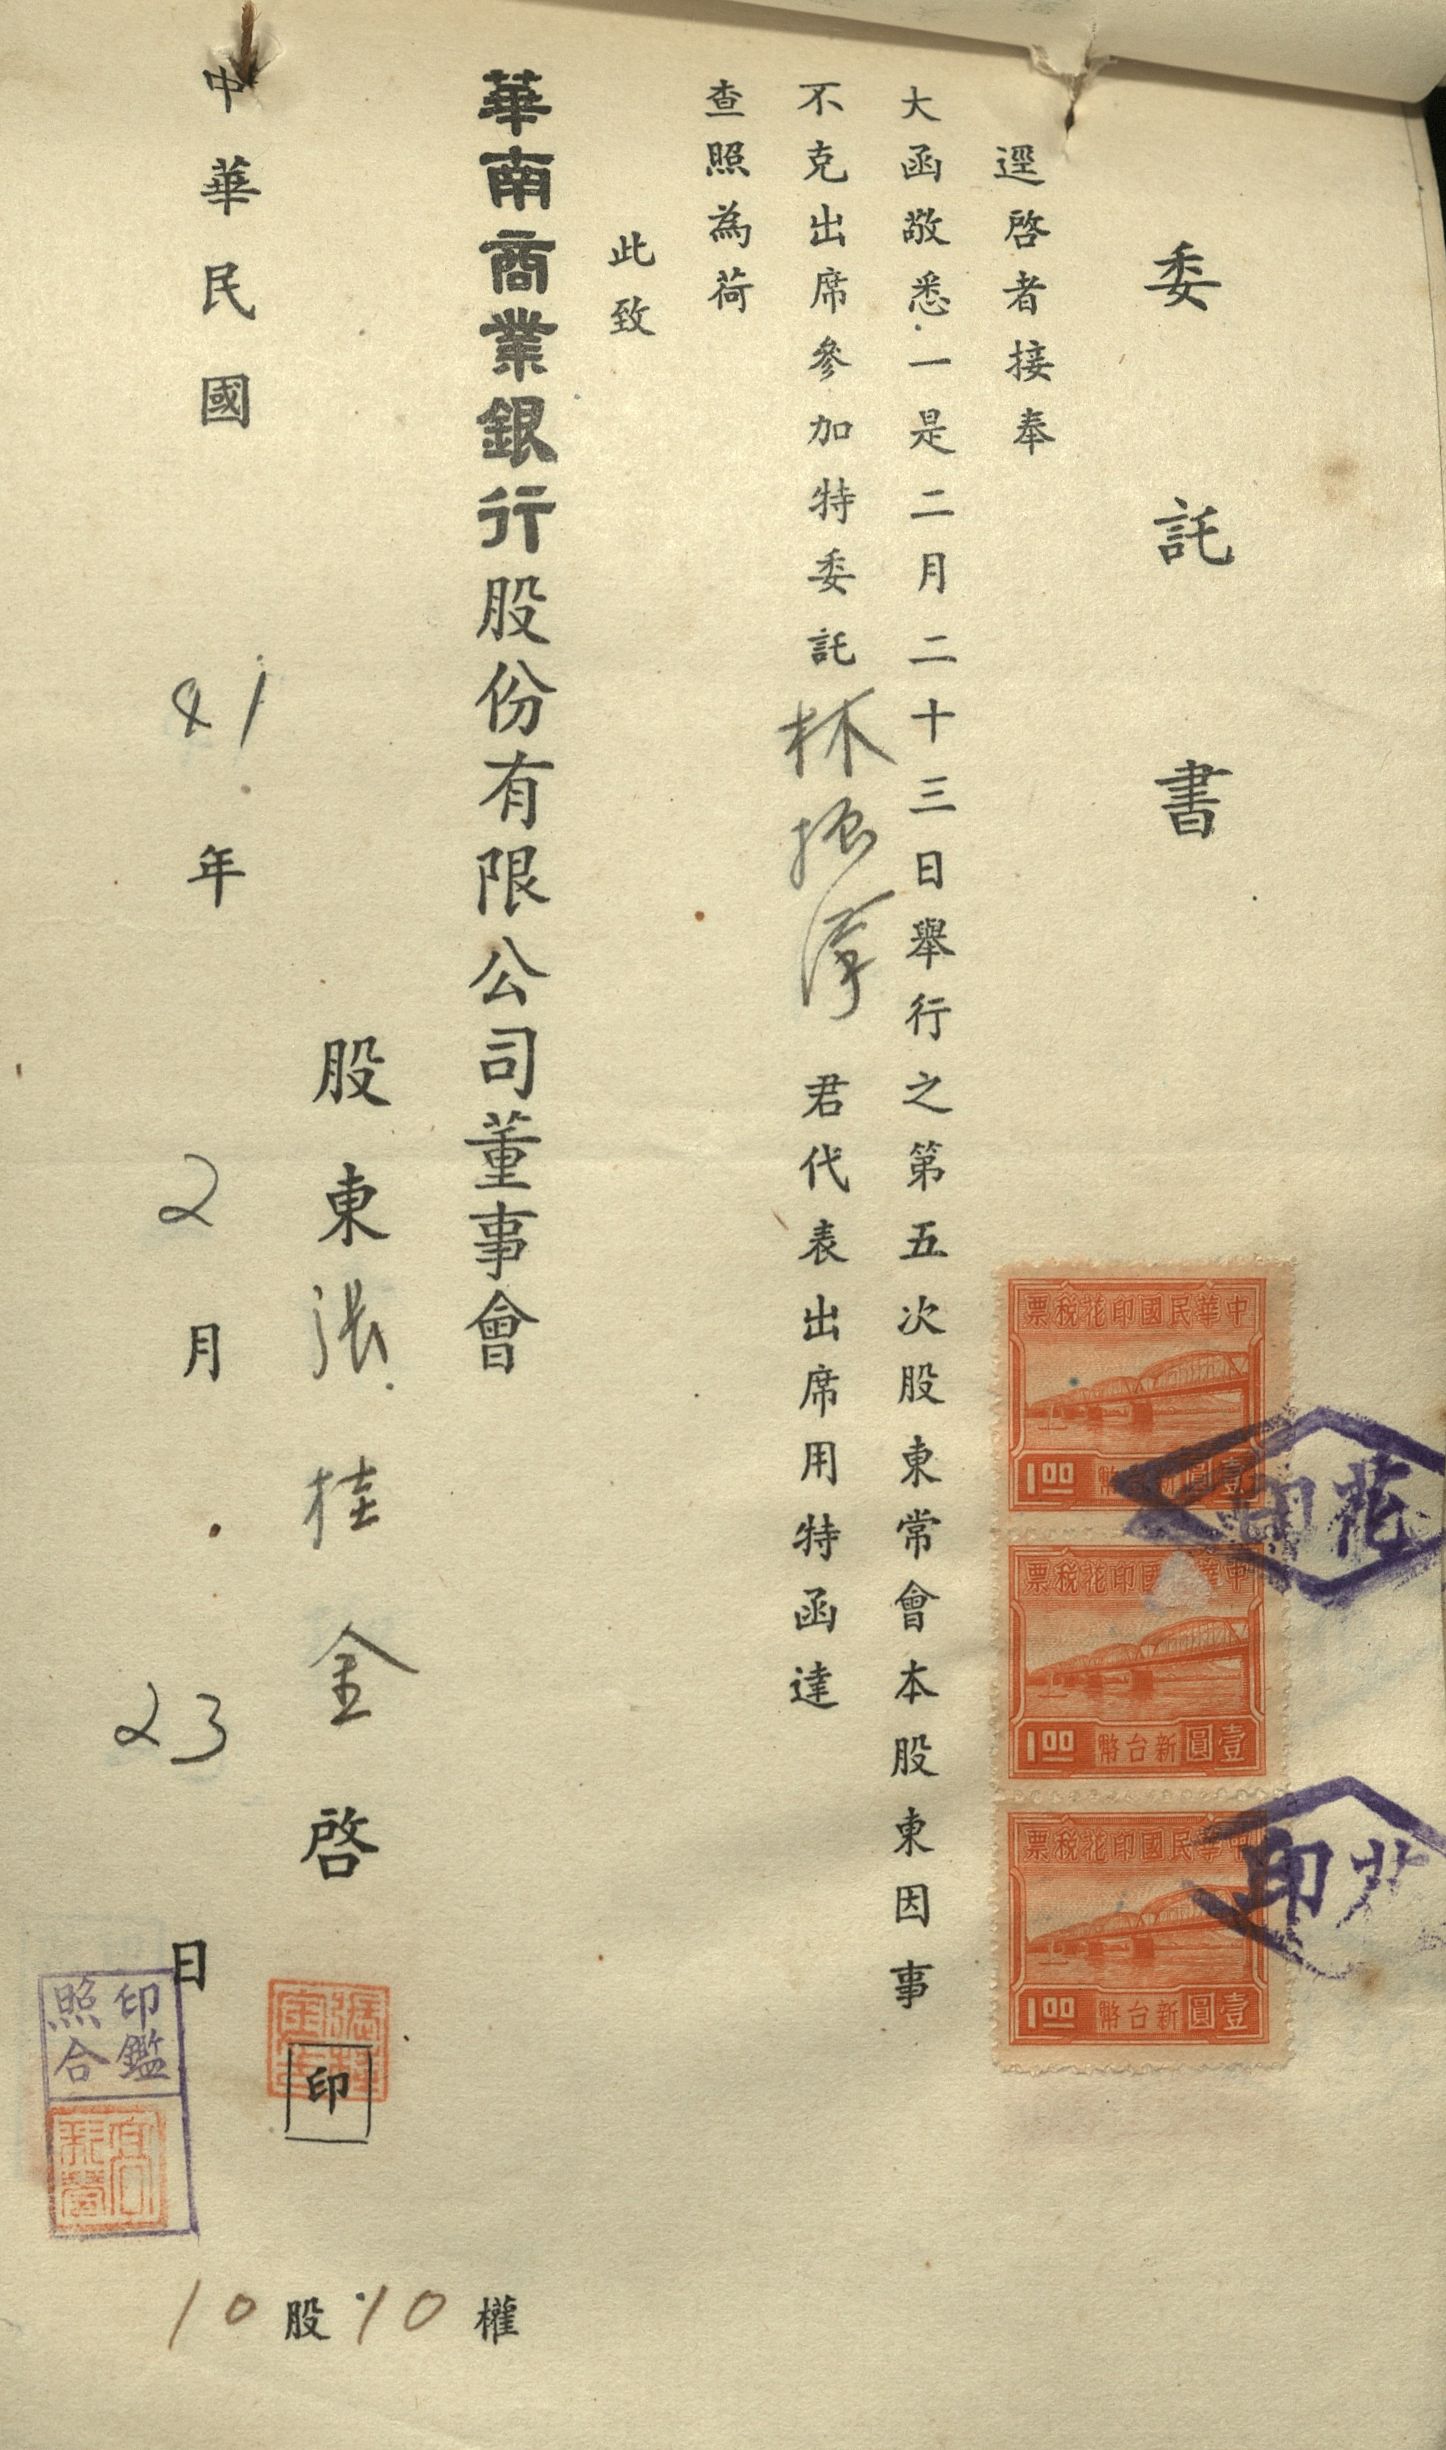 委託書
逕啓者接奉
大函敬悉一是二月二十三日舉行之第五次股東常會本股東因事
不克出席參加特委託林振澤君代表出席用特函達
查照為荷
此致
華南商業銀行股份有限公司董事會
股東張桂金啓
印
中華民國41年2月23日
10股10權
印鑑
照合
中華民國印花稅票
壹圓
1.00
中華民國印花稅票
壹圓新台幣
1.00
中華民國印花稅票
壹圓新台幣
1.00
花印
印